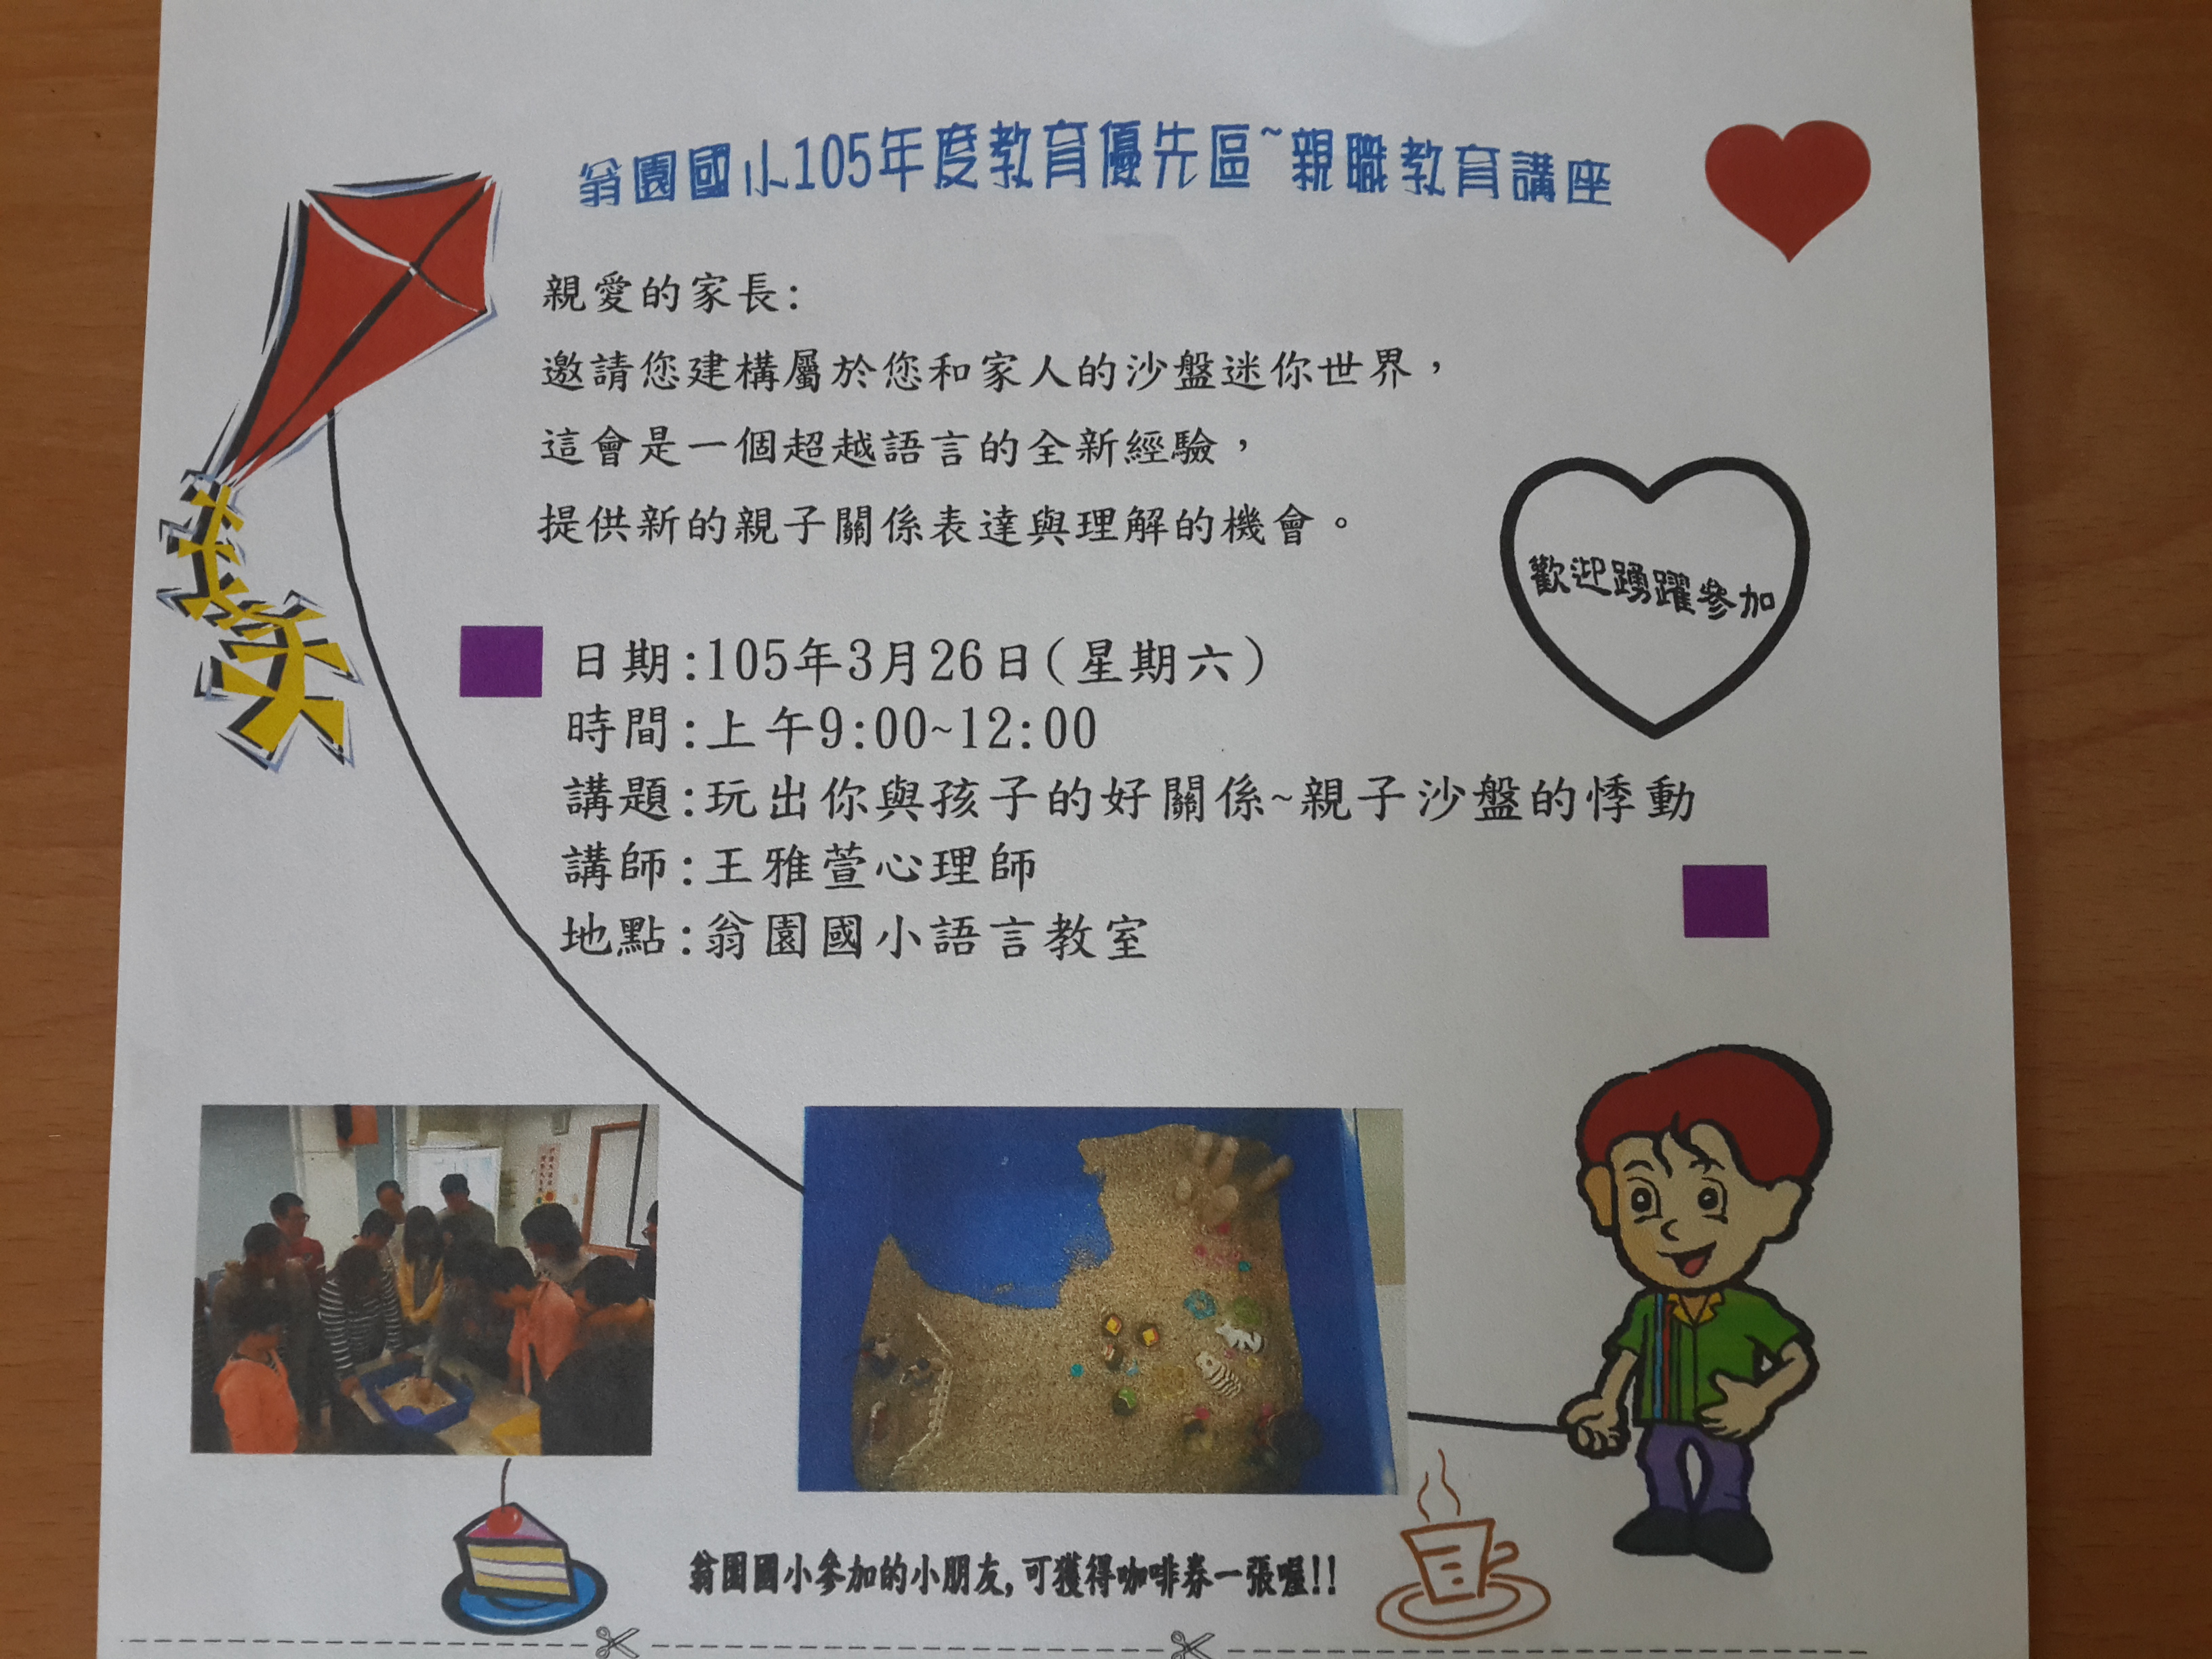 翁園國小105年度教育優先區~親職教育講座
親愛的家長:
邀請您建構屬於您和家人的沙盤迷你世界，
這會是一個超越語言的全新經驗，
提供新的親子關係表達與理解的機會。
歡迎踴躍參加
日期:105年3月26日(星期六)
時間:上午9:00~12:00
講題:玩出你與孩子的好關係~親子沙盤的悸動
講師:王雅萱心理師
地點:翁園國小語言教室
翁園國小參加的小朋友,可獲得咖啡券一張喔!!